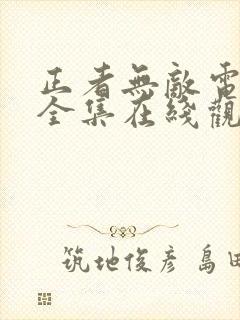 正者無敵電
全集在綫觀
筑地俊彦 島田